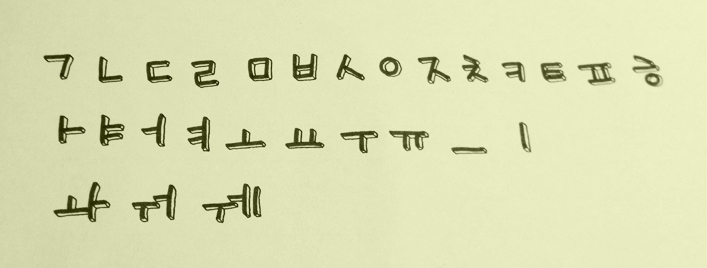 ㄱ ㄴ ㄷ ㄹ ㅁ ㅂ ㅅ ㅇ ㅈ ㅊ ㅋ ㅌ ㅍ ㅎ
ㅏ ㅑ ㅓ ㅕ ㅗ ㅛ ㅜ ㅠ ㅡ ㅣ
ㅘ ㅝ ㅞ